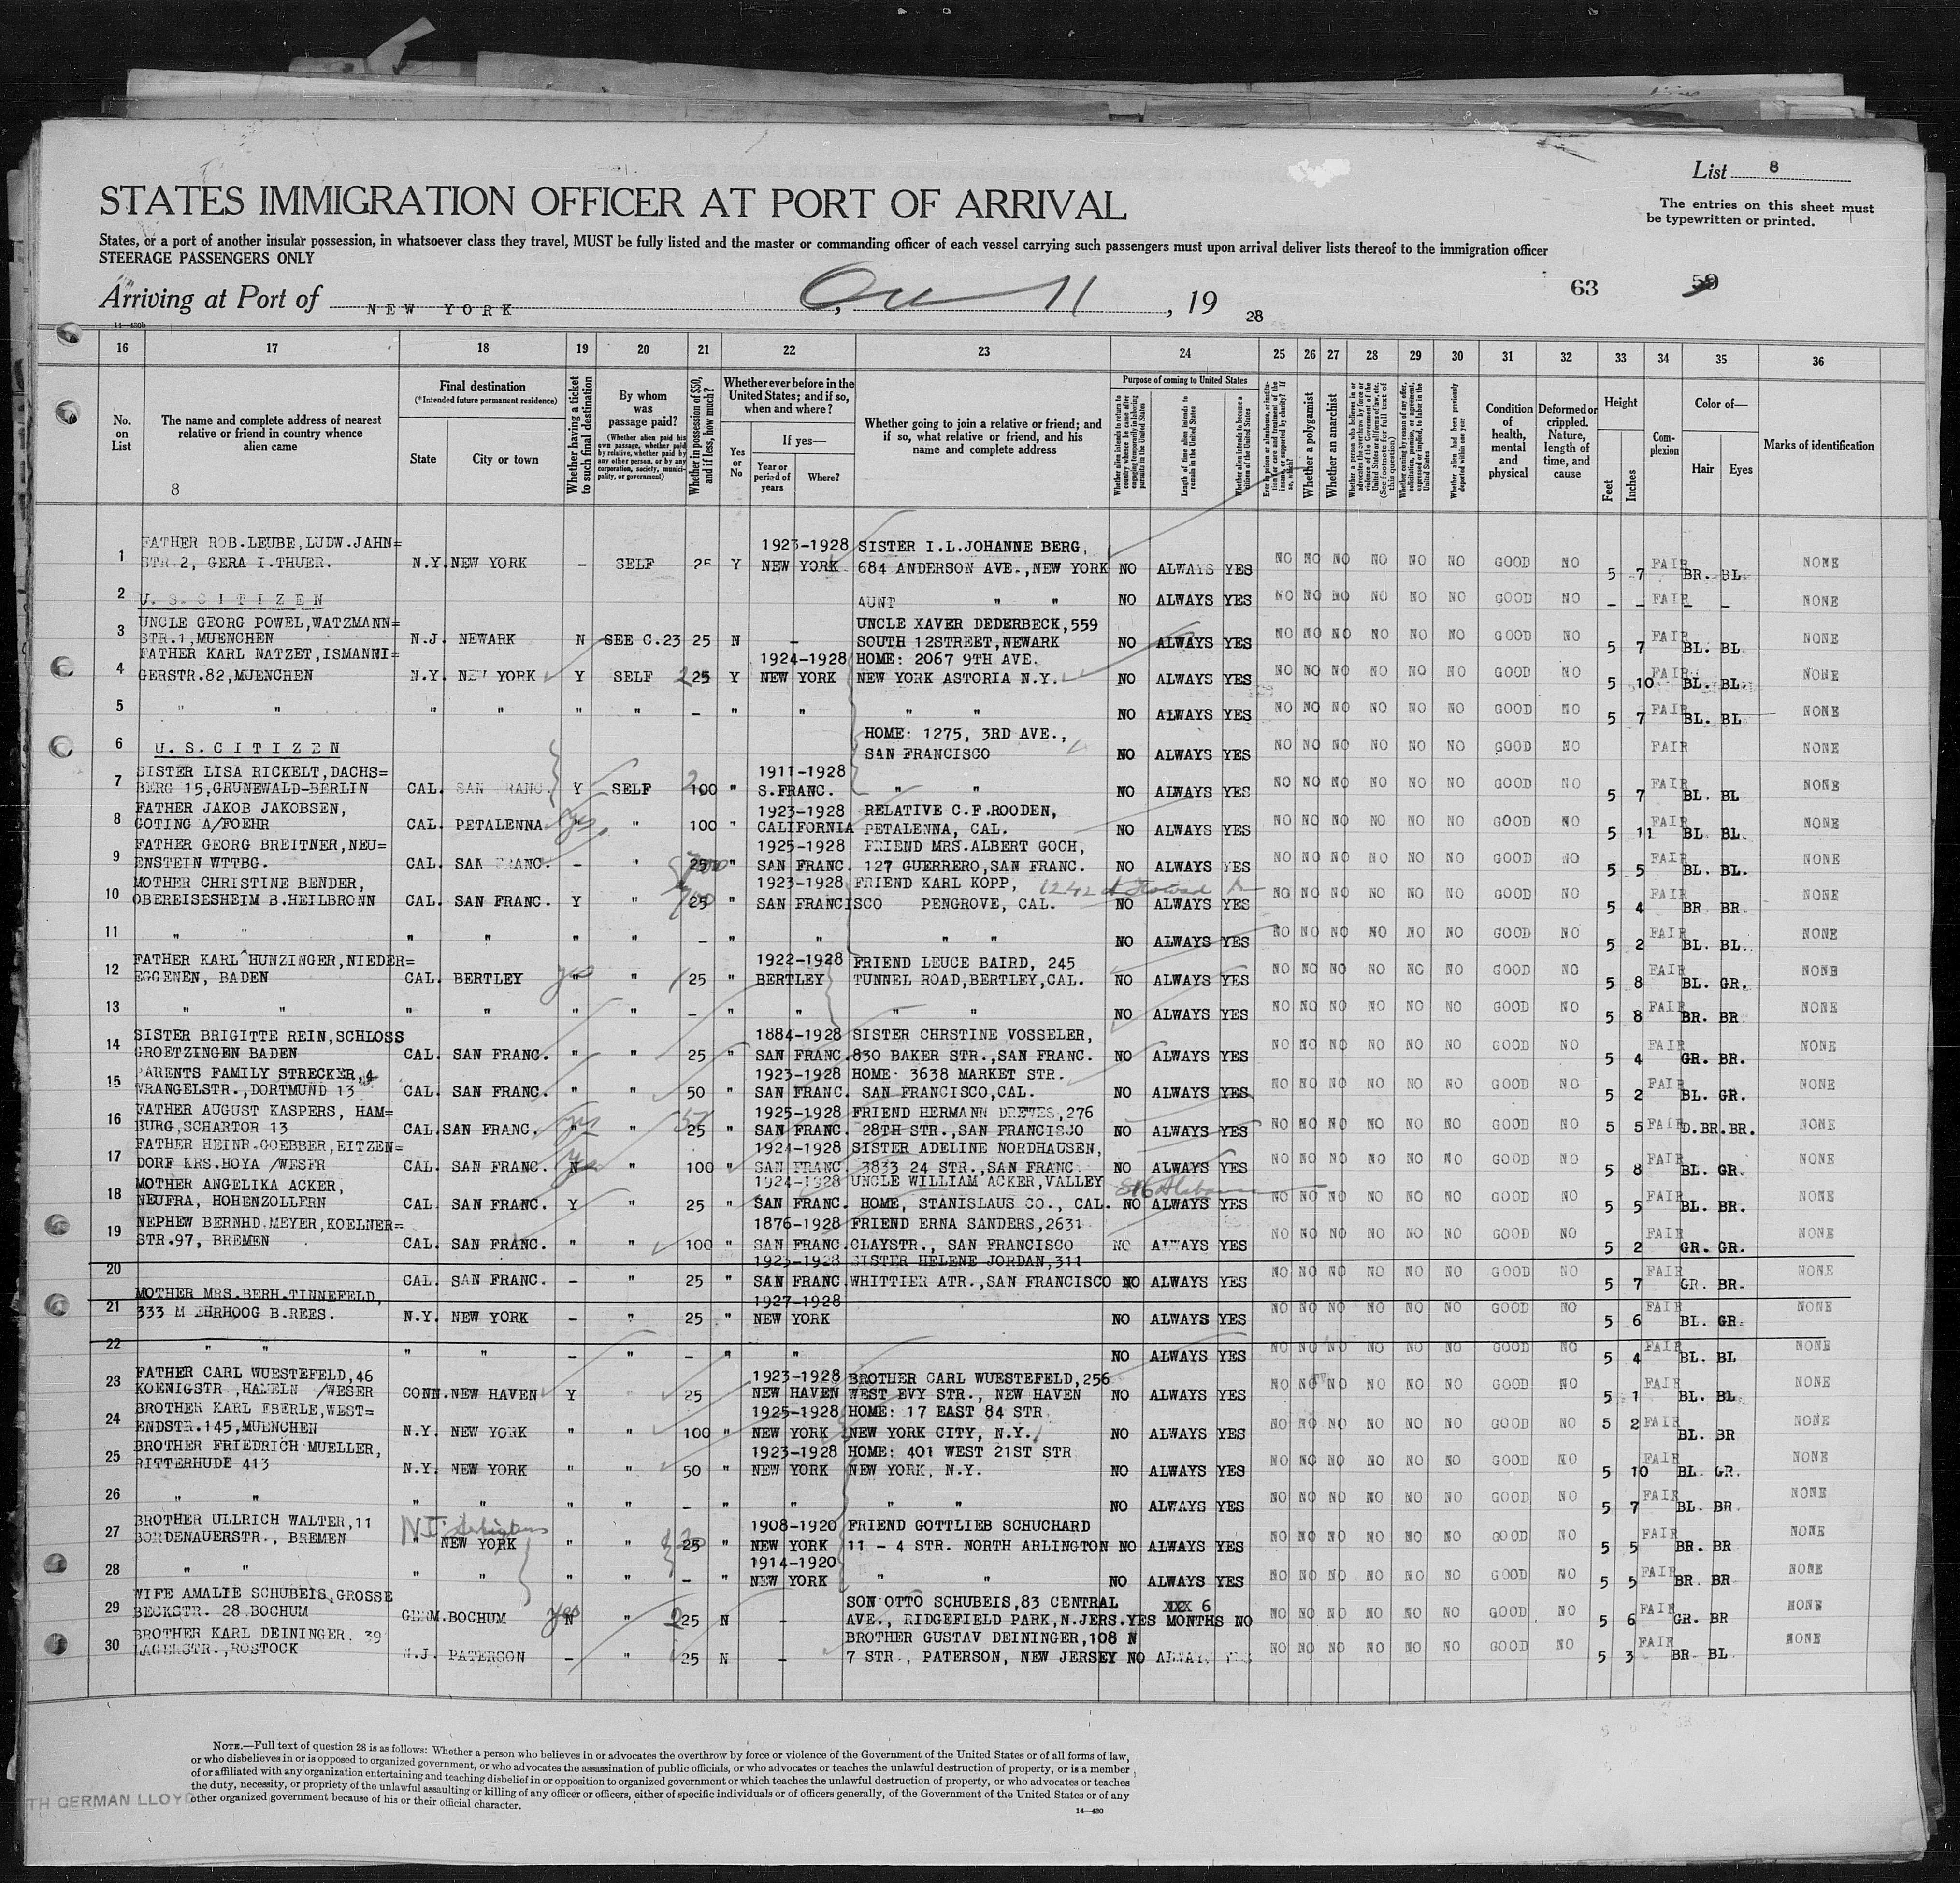 List 8
STATES IMMIGRATION OFFICER AT PORT OF ARRIVAL
The entries on this sheet must
be typewritten or printed.
States, or a port of another insular possession, in whatsoever class they travel, MUST be fully listed and the master or commanding officer of each vessel carrying such passengers must upon arrival deliver lists thereof to the immigration officer
STEERAGE PASSENGERS ONLY
63 59
Arriving at Port of NEW YORK, 11, 19 28
14—430b
16 17 18 19 20 21 22 23 24 25 26 27 28 29 30 31 32 33 34 35 36
No. on List
The name and complete address of nearest relative or friend in country whence alien came
8
Final destination
(*Intended future permanent residence)
State
City or town
Whether having a ticket to such final destination
By whom was passage paid?
(Whether alien paid his own passage, whether paid by relative, whether paid by any other person, or by any corporation, society, municipality, or government)
Whether in possession of $50, and if less, how much?
Whether ever before in the United States; and if so, when and where?
Yes or No
If yes—
Year or period of years
Where?
Whether going to join a relative or friend; and if so, what relative or friend, and his name and complete address
Purpose of coming to United States
Whether alien intends to return to country whence he came after engaging temporarily in laboring pursuits in the United States
Length of time alien intends to remain in the United States
Whether alien intends to become a citizen of the United States
Ever in prison or almshouse, or institution for care and treatment of the insane, or supported by charity? If so, which?
Whether a polygamist
Whether an anarchist
Whether a person who believes in or advocates the overthrow by force or violence of the Government of the United States or all forms of law, etc. (See footnote for full text of this question)
Whether coming by reason of any offer, solicitation, promise, or agreement, expressed or implied, to labor in the United States
Whether alien had been previously deported within one year
Condition of health, mental and physical
Deformed or crippled. Nature, length of time, and cause
Height
Feet
Inches
Complexion
Color of—
Hair
Eyes
Marks of identification
1 FATHER ROB.LEUBE,LUDW.JAHN= 1923-1928 SISTER I.L.JOHANNE BERG,
STR.2, GERA I.THUER. N.Y. NEW YORK – SELF 25 Y NEW YORK 684 ANDERSON AVE.,NEW YORK NO ALWAYS YES NO NO NO NO NO NO GOOD NO 5 7 FAIR BR. BL NONE
2 U.S.CITIZEN AUNT " " NO ALWAYS YES NO NO NO NO NO NO GOOD NO – – FAIR – – NONE
3 UNCLE GEORG POWEL,WATZMANN= UNCLE XAVER DEDERBECK,559
STR.1,MUENCHEN N.J. NEWARK N SEE C.23 25 N – SOUTH 12STREET,NEWARK NO ALWAYS YES NO NO NO NO NO NO GOOD NO 5 7 FAIR BL. BL NONE
4 FATHER KARL NATZET,ISMANNI= 1924-1928 HOME: 2067 9TH AVE.
GERSTR.82,MUENCHEN N.Y. NEW YORK Y SELF 225 Y NEW YORK NEW YORK ASTORIA N.Y. NO ALWAYS YES NO NO NO NO NO NO GOOD NO 5 10 FAIR BL. BL. NONE
5 " " " " " " – " " " " NO ALWAYS YES NO NO NO NO NO NO GOOD NO 5 7 FAIR BL. BL NONE
6 U.S.CITIZEN HOME: 1275, 3RD AVE.,
SAN FRANCISCO NO ALWAYS YES NO NO NO NO NO NO GOOD NO FAIR NONE
7 SISTER LISA RICKELT,DACHS= 1911-1928
BERG 15,GRUNEWALD-BERLIN CAL. SAN FRANC. Y SELF 2 100 " S.FRANC. " " NO ALWAYS YES NO NO NO NO NO NO GOOD NO 5 7 FAIR BL. BL NONE
8 FATHER JAKOB JAKOBSEN, 1923-1928 RELATIVE C.F.ROODEN,
GOTING A/FOEHR CAL. PETALENNA yes " 100 " CALIFORNIA PETALENNA, CAL. NO ALWAYS YES NO NO NO NO NO NO GOOD NO 5 11 FAIR BL BL. NONE
9 FATHER GEORG BREITNER,NEU= 1925-1928 FRIEND MRS.ALBERT GOCH,
ENSTEIN WTTBG. CAL. SAN FRANC. – " 25 " SAN FRANC. 127 GUERRERO,SAN FRANC. NO ALWAYS YES NO NO NO NO NO NO GOOD NO 5 5 FAIR BL. BL. NONE
10 MOTHER CHRISTINE BENDER, 1923-1928 FRIEND KARL KOPP, 1242
OBEREISESHEIM B.HEILBRONN CAL. SAN FRANC. Y " 25 " SAN FRANCISCO PENGROVE, CAL. NO ALWAYS YES NO NO NO NO NO NO GOOD NO 5 4 FAIR BR BR NONE
11 " " " " " " – " " " " NO ALWAYS YES NO NO NO NO NO NO GOOD NO 5 2 FAIR BL. BL. NONE
12 FATHER KARL HUNZINGER,NIEDER= 1922-1928 FRIEND LEUCE BAIRD, 245
EGGENEN, BADEN CAL. BERTLEY yes " " 25 " BERTLEY TUNNEL ROAD,BERTLEY,CAL. NO ALWAYS YES NO NO NO NO NO NO GOOD NO 5 8 FAIR BL. GR. NONE
13 " " " " " " – " " " " NO ALWAYS YES NO NO NO NO NO NO GOOD NO 5 8 FAIR BR. BR NONE
14 SISTER BRIGITTE REIN,SCHLOSS 1884-1928 SISTER CHRSTINE VOSSELER,
GROETZINGEN BADEN CAL. SAN FRANC. " " 25 " SAN FRANC. 830 BAKER STR.,SAN FRANC. NO ALWAYS YES NO NO NO NO NO NO GOOD NO 5 4 FAIR GR. BR. NONE
15 PARENTS FAMILY STRECKER,4 1923-1928 HOME: 3638 MARKET STR.
WRANGELSTR.,DORTMUND 13 CAL. SAN FRANC. " " 50 " SAN FRANC. SAN FRANCISCO,CAL. NO ALWAYS YES NO NO NO NO NO NO GOOD NO 5 2 FAIR BL. GR. NONE
16 FATHER AUGUST KASPERS, HAM= 1925-1928 FRIEND HERMANN DREWES,276
BURG,SCHARTOR 13 CAL. SAN FRANC. yes " " 25 " SAN FRANC. 28TH STR.,SAN FRANCISCO NO ALWAYS YES NO NO NO NO NO NO GOOD NO 5 5 FAIR D.BR.BR. NONE
17 FATHER HEINR.GOEBBER,EITZEN= 1924-1928 SISTER ADELINE NORDHAUSEN,
DORF KRS.HOYA /WESER CAL. SAN FRANC. yes N " 100 " SAN FRANC. 3833 24 STR.,SAN FRANC. NO ALWAYS YES NO NO NO NO NO NO GOOD NO 5 8 FAIR BL. GR. NONE
18 MOTHER ANGELIKA ACKER, 1924-1928 UNCLE WILLIAM ACKER,VALLEY 816 Alabama
NEUFRA, HOHENZOLLERN CAL. SAN FRANC. Y " 25 " SAN FRANC. HOME, STANISLAUS CO., CAL. NO ALWAYS YES NO NO NO NO NO NO GOOD NO 5 5 FAIR BL. BR. NONE
19 NEPHEW BERNHD.MEYER,KOELNER= 1876-1928 FRIEND ERNA SANDERS,2631
STR.97, BREMEN CAL. SAN FRANC. " " 100 " SAN FRANC. CLAYSTR., SAN FRANCISCO NO ALWAYS YES NO NO NO NO NO NO GOOD NO 5 2 FAIR GR. GR. NONE
20 1923-1928 SISTER HELENE JORDAN,311
CAL. SAN FRANC. – " 25 " SAN FRANC. WHITTIER ATR.,SAN FRANCISCO NO ALWAYS YES NO NO NO NO NO NO GOOD NO 5 7 FAIR GR. BR. NONE
21 MOTHER MRS.BERH.TINNEFELD, 1927-1928
333 M EHRHOOG B.REES. N.Y. NEW YORK – " 25 " NEW YORK NO ALWAYS YES NO NO NO NO NO NO GOOD NO 5 6 FAIR BL. GR. NONE
22 " " " " – " – " " NO ALWAYS YES NO NO NO NO NO NO GOOD NO 5 4 FAIR BL. BL NONE
23 FATHER CARL WUESTEFELD,46 1923-1928 BROTHER CARL WUESTEFELD,256
KOENIGSTR ,HAMELN /WESER CONN. NEW HAVEN Y " 25 " NEW HAVEN WEST EVY STR., NEW HAVEN NO ALWAYS YES NO NO NO NO NO NO GOOD NO 5 1 FAIR BL. BL NONE
24 BROTHER KARL EBERLE,WEST= 1925-1928 HOME: 17 EAST 84 STR
ENDSTR.145,MUENCHEN N.Y. NEW YORK " " 100 " NEW YORK NEW YORK CITY, N.Y. NO ALWAYS YES NO NO NO NO NO NO GOOD NO 5 2 FAIR BL. BR NONE
25 BROTHER FRIEDRICH MUELLER, 1923-1928 HOME: 401 WEST 21ST STR
RITTERHUDE 413 N.Y. NEW YORK " " 50 " NEW YORK NEW YORK, N.Y. NO ALWAYS YES NO NO NO NO NO NO GOOD NO 5 10 FAIR BL GR. NONE
26 " " " " " " – " " " " NO ALWAYS YES NO NO NO NO NO NO GOOD NO 5 7 FAIR BL. BR. NONE
27 BROTHER ULLRICH WALTER,11 N.J. Arlington 1908-1920 FRIEND GOTTLIEB SCHUCHARD
BORDENAUERSTR., BREMEN " NEW YORK " " 25 " NEW YORK 11 – 4 STR. NORTH ARLINGTON NO ALWAYS YES NO NO NO NO NO NO GOOD NO 5 5 FAIR BR. BR NONE
28 " " 1914-1920
" " " " – " NEW YORK " " NO ALWAYS YES NO NO NO NO NO NO GOOD NO 5 5 FAIR BR. BR NONE
29 WIFE AMALIE SCHUBEIS,GROSSE SON OTTO SCHUBEIS,83 CENTRAL XXX 6
BECKSTR. 28 BOCHUM GERM. BOCHUM yes N " 225 N – AVE., RIDGEFIELD PARK,N.JERS. YES MONTHS NO NO NO NO NO NO NO GOOD NO 5 6 FAIR GR. BR NONE
30 BROTHER KARL DEININGER, 39 BROTHER GUSTAV DEININGER,108 N
LAGERSTR.,ROSTOCK N.J. PATERSON – " 25 N – 7 STR., PATERSON, NEW JERSEY NO ALWAYS YES NO NO NO NO NO NO GOOD NO 5 3 FAIR BR BL NONE
NOTE.—Full text of question 28 is as follows: Whether a person who believes in or advocates the overthrow by force or violence of the Government of the United States or of all forms of law,
or who disbelieves in or is opposed to organized government, or who advocates the assassination of public officials, or who advocates or teaches the unlawful destruction of property, or is a member
of or affiliated with any organization entertaining and teaching disbelief in or opposition to organized government or which teaches the unlawful destruction of property, or who advocates or teaches
the duty, necessity, or propriety of the unlawful assaulting or killing of any officer or officers, either of specific individuals or of officers generally, of the Government of the United States or of any
other organized government because of his or their official character.
14—430
TH GERMAN LLOYD